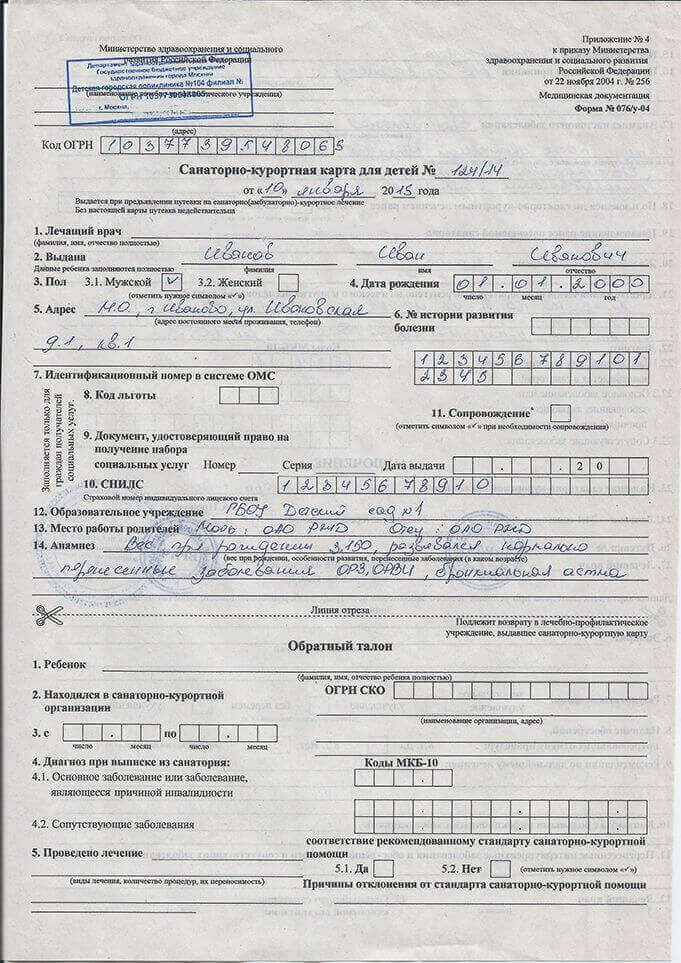 Министерство здравоохранения и социального
развития Российской Федерации
Приложение № 4
к приказу Министерства
здравоохранения и социального развития
Российской Федерации
от 22 ноября 2004 г. № 256
Медицинская документация
Форма № 076/у-04
Департамент здравоохранения города Москвы
Государственное бюджетное учреждение
здравоохранения города Москвы
Детская городская поликлиника №104 филиал №
ОГРН
г. Москва,
(адрес)
Код ОГРН 1037739548065
Санаторно-курортная карта для детей № 124/14
от «10» января 2015 года
Выдается при предъявлении путевки на санаторно(амбулаторно)-курортное лечение
Без настоящей карты путевка недействительна
1. Лечащий врач
(фамилия, имя, отчество полностью)
2. Выдана Иванов Иван Иванович
Данные ребенка заполняются полностью фамилия имя отчество
3. Пол 3.1. Мужской ✓ 3.2. Женский 4. Дата рождения 01.01.2000
(отметить нужное символом «✓») число месяц год
5. Адрес М.О., г. Иваново, ул. Ивановская
(адрес постоянного места проживания, телефон)
д.1, кв.1
6. № истории развития
болезни
7. Идентификационный номер в системе ОМС 1234567891012345
Заполняется только для
граждан получателей
социальных услуг.
8. Код льготы
11. Сопровождение
(отметить символом «✓» при необходимости сопровождения)
9. Документ, удостоверяющий право на
получение набора
социальных услуг Номер Серия Дата выдачи . . 20
10. СНИЛС 12345678910
Страховой номер индивидуального лицевого счета
12. Образовательное учреждение РБОУ Детский сад №1
13. Место работы родителей Мать: ОАО РЖД Отец: ОАО РЖД
14. Анамнез Вес при рождении 3,150, развивался нормально
(вес при рождении, особенности развития, перенесенные заболевания (в каком возрасте)
перенесенные заболевания ОРЗ, ОРВИ, бронхиальная астма
Линия отреза
Подлежит возврату в лечебно-профилактическое
учреждение, выдавшее санаторно-курортную карту
Обратный талон
1. Ребенок
(фамилия, имя, отчество ребенка полностью)
2. Находился в санаторно-курортной
организации
ОГРН СКО
(наименование организации, адрес)
3. с . по .
число месяц число месяц
4. Диагноз при выписке из санатория: Коды МКБ-10
4.1. Основное заболевание или заболевание,
являющееся причиной инвалидности
4.2. Сопутствующие заболевания
5. Проведено лечение
(виды лечения, количество процедур, их переносимость)
соответствие рекомендованному стандарту санаторно-курортной
помощи
5.1. Да 5.2. Нет (отметить нужное символом «✓»)
Причины отклонения от стандарта санаторно-курортной помощи